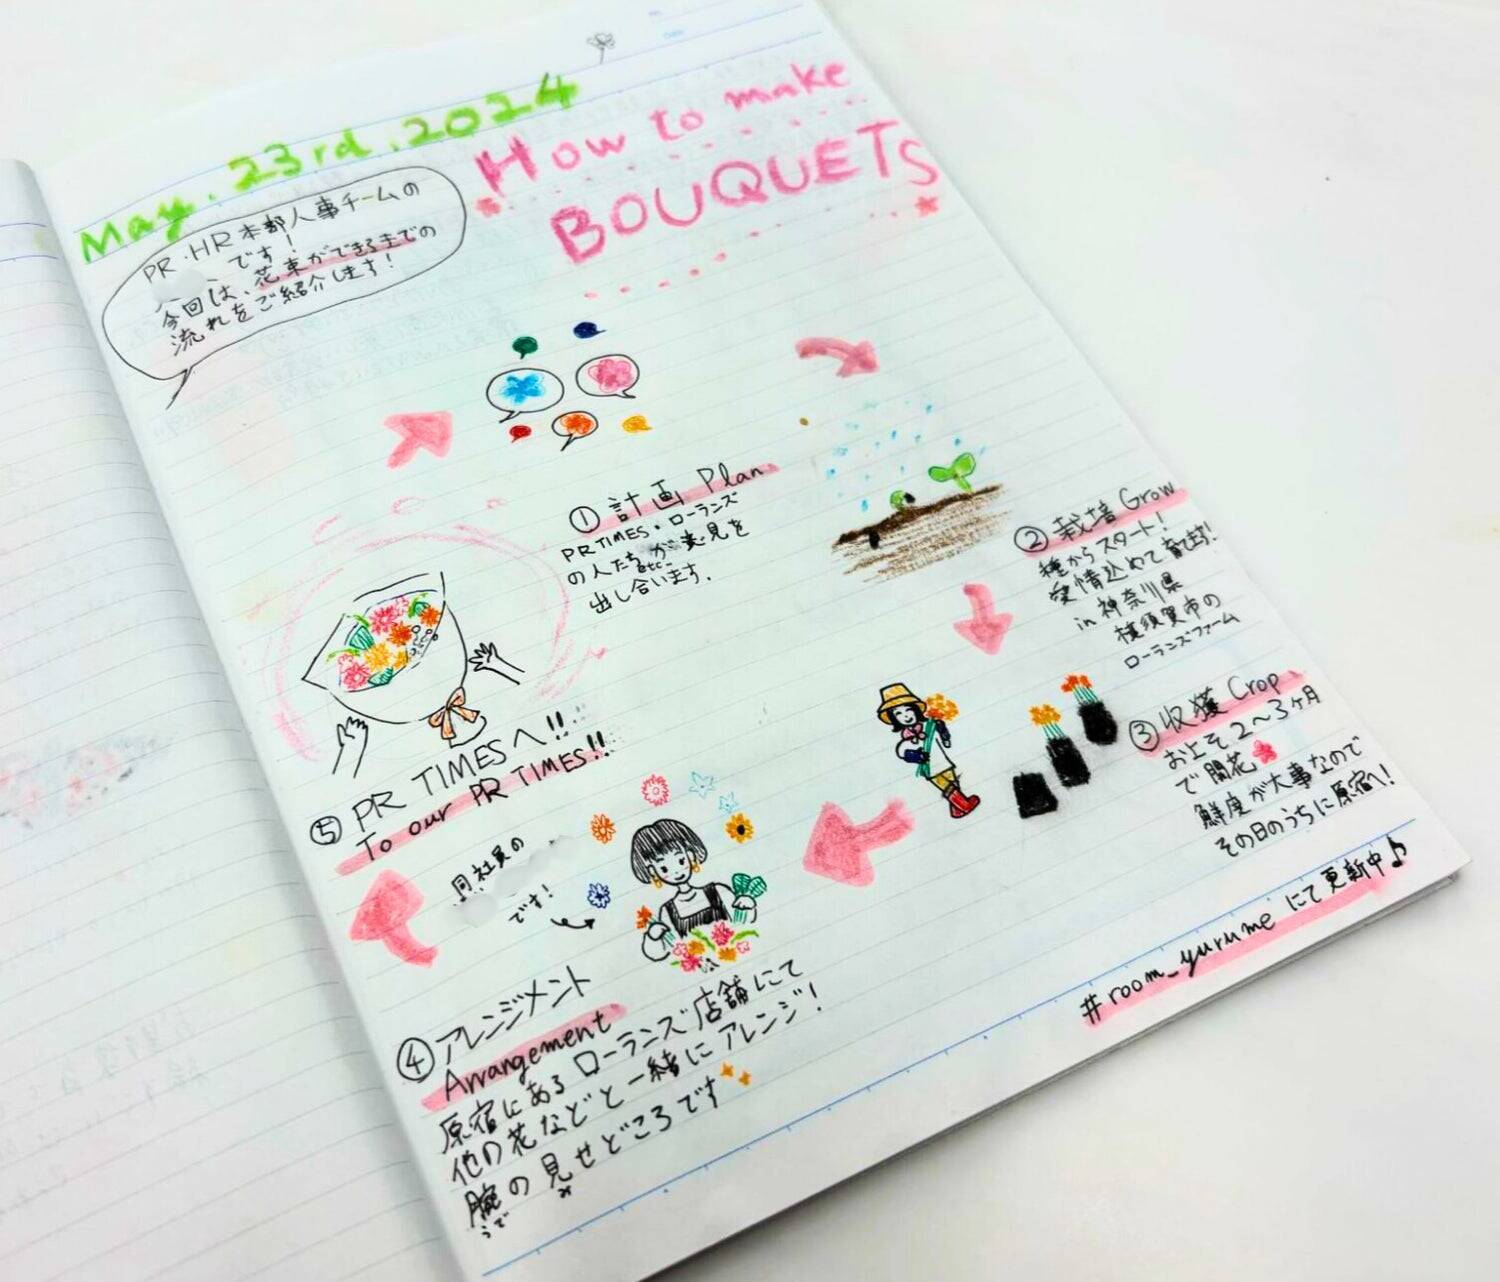 May. 23rd. 2024
How to make
BOUQUETS
PR・HR本部人事チームの
です！
今回は、花束ができるまでの
流れをご紹介します！
① 計画 Plan
PRTIMES・ローランズ
の人たちが意見を
etc...
出し合います.
② 栽培 Grow
種からスタート！
愛情込めて育てます！
in 神奈川県
横須賀市の
ローランズファーム
③ 収穫 Crop
およそ2〜3ヶ月
で開花
鮮度が大事なので
その日のうちに原宿へ！
同社員の
です！
④ アレンジメント
Arrangement
原宿にあるローランズ店舗にて
他の花などと一緒にアレンジ！
腕の見せどころです
うで み
⑤ PR TIMESへ!!
To our PR TIMES!!
#room_yurume にて更新中♪